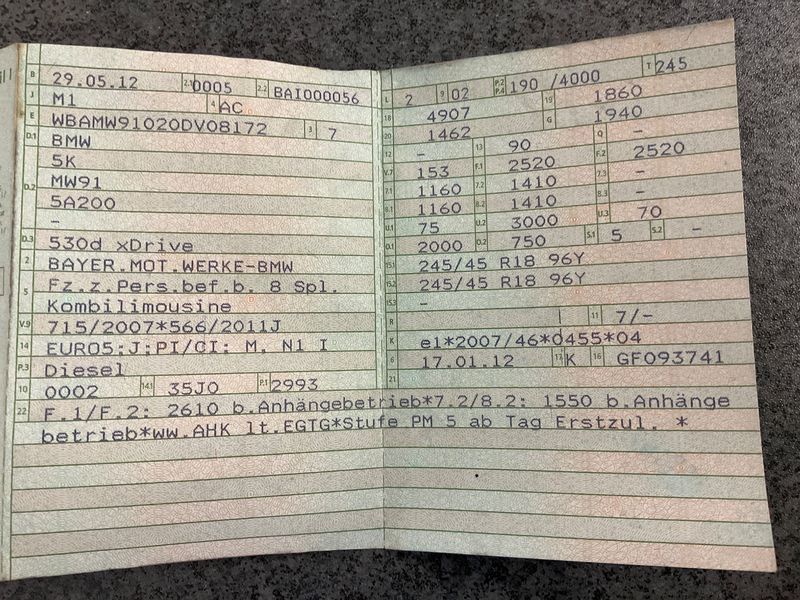 B 29.05.12 2.1 0005 2.2 BAI000056
J M1 4 AC
E WBAMW91020DV08172 3 7
D.1 BMW
5K
MW91
D.2 5A200
-
D.3 530d xDrive
2 BAYER.MOT.WERKE-BMW
5 Fz.z.Pers.bef.b. 8 Spl.
Kombilimousine
V.9 715/2007*566/2011J
14 EURO5;J;PI/CI; M, N1 I
P.3 Diesel
10 0002 14.1 35J0 P.1 2993
L 2 9 02 P.2 P.4 190 /4000 T 245
18 4907 19 1860
20 1462 G 1940
12 - 13 90 Q -
V.7 153 F.1 2520 F.2 2520
7.1 1160 7.2 1410 7.3 -
8.1 1160 8.2 1410 8.3 -
U.1 75 U.2 3000 U.3 70
O.1 2000 O.2 750 S.1 5 S.2 -
15.1 245/45 R18 96Y
15.2 245/45 R18 96Y
15.3 -
R 11 7/-
K e1*2007/46*0455*04
6 17.01.12 17 K 16 GF093741
21
22 F.1/F.2: 2610 b.Anhängebetrieb*7.2/8.2: 1550 b.Anhänge
betrieb*ww.AHK lt.EGTG*Stufe PM 5 ab Tag Erstzul. *